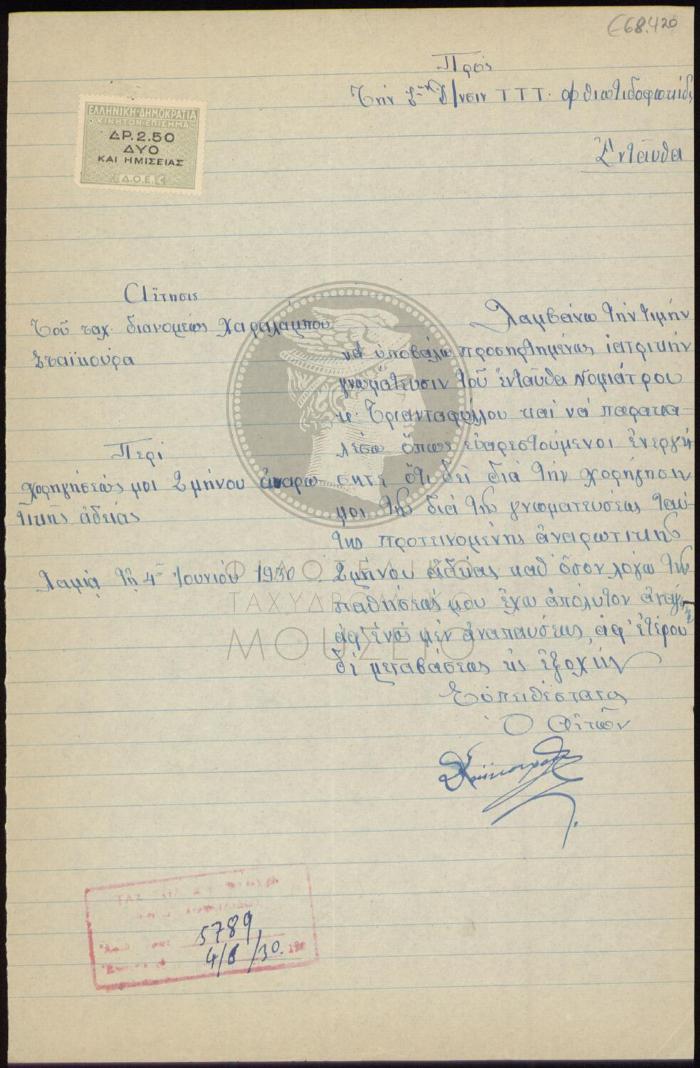 Ε68.420
Πρός
Τὴν Δ/νσιν Τ.Τ.Τ. Φθιωτιδοφωκίδος
Ἐνταῦθα
ΕΛΛΗΝΙΚΗ·ΔΗΜΟΚΡΑΤΙΑ
ΚΙΝΗΤΟΝ·ΕΠΙΣΗΜΑ
ΔΡ.2.50
ΔΥΟ
ΚΑΙ ΗΜΙΣΕΙΑΣ
Δ.Ο.Ε.
Αἴτησις
Τοῦ ταχ. διανομέως Χαραλάμπου
Σταϊκούρα
Περὶ
χορηγήσεώς μοι 2μήνου ἀναρω
τικῆς ἀδείας
Λαμία τῇ 4ῃ Ἰουνίου 1930
Λαμβάνω τὴν τιμὴν
νὰ ὑποβάλω προσηρτημένως ἰατρικὴν
γνωμάτευσιν τοῦ ἐνταῦθα Νομιάτρου
κ. Τριανταφύλλου καὶ νὰ παρακα
λέσω ὅπως εὐαρεστούμενοι ἐνεργή
σητε ὅτι δεῖ διὰ τὴν χορήγησιν
μοι τῆς διὰ τῆς γνωματεύσεως ταύ
της προτεινομένης ἀναρωτικῆς
2μήνου ἀδείας καθ' ὅσον λόγω τῆς
παθήσεώς μου ἔχω ἀπόλυτον ἀνάγκην
ἀφ' ἑνὸς μὲν ἀναπαύσεως, ἀφ' ἑτέρου
δὲ μεταβάσεως εἰς ἐξοχήν
Εὐπειθέστατος
Ὁ Αἰτῶν
ΦΙΛΟΤΕΛΙΚΟ
ΤΑΧΥΔΡΟΜΙΚΟ
ΜΟΥΣΕΙΟ
5789
4/6/30.